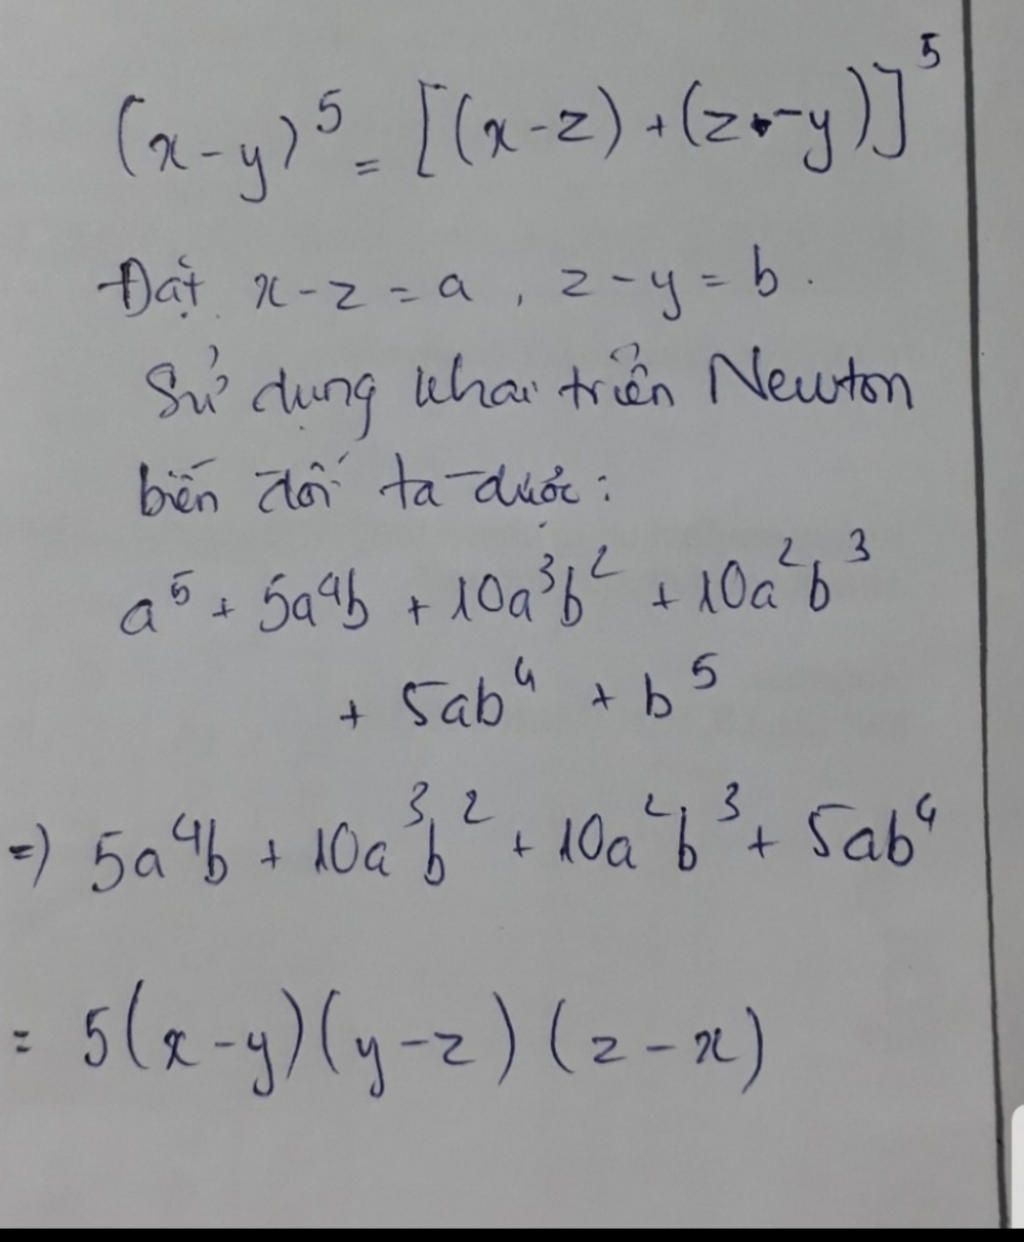 (x-y)⁵ = [(x-z)+(z-y)]⁵
Đặt x-z=a, z-y=b.
Sử dụng khai triển Newton
biến đổi ta được:
a⁵ + 5a⁴b + 10a³b² + 10a²b³
+ 5ab⁴ + b⁵
=) 5a⁴b + 10a³b² + 10a²b³ + 5ab⁴
= 5(x-y)(y-z)(z-x)